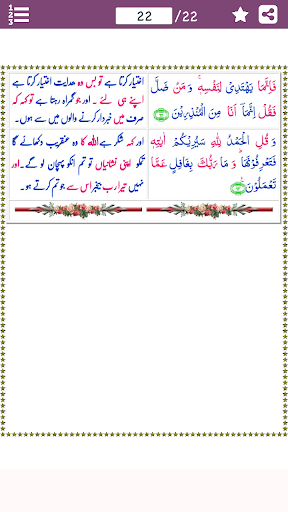 22 /22
فَاِنَّمَا يَهْتَدِىْ لِنَفْسِهٖ ۚ وَ مَنْ ضَلَّ
فَقُلْ اِنَّمَاۤ اَنَا مِنَ الْمُنْذِرِيْنَ
اختیار کرتا ہے تو بس وہ ہدایت اختیار کرتا ہے
اپنے ہی لئے ۔ اور جو گمراہ رہتا ہے تو کہہ کہ
صرف میں خبردار کرنے والوں میں سے ہوں۔
وَ قُلِ الْحَمْدُ لِلّٰهِ سَيُرِيْكُمْ اٰيٰتِهٖ
فَتَعْرِفُوْنَهَا ؕ وَ مَا رَبُّكَ بِغَافِلٍ عَمَّا
تَعْمَلُوْنَ
اور کہہ شکر ہےاللہ کا وہ عنقریب دکھائے گا
تمکو اپنی نشانیاں تو تم انکو پہچان لو گے۔اور
نہیں تیرا رب بیخبر اس سے جو تم کرتے ہو۔